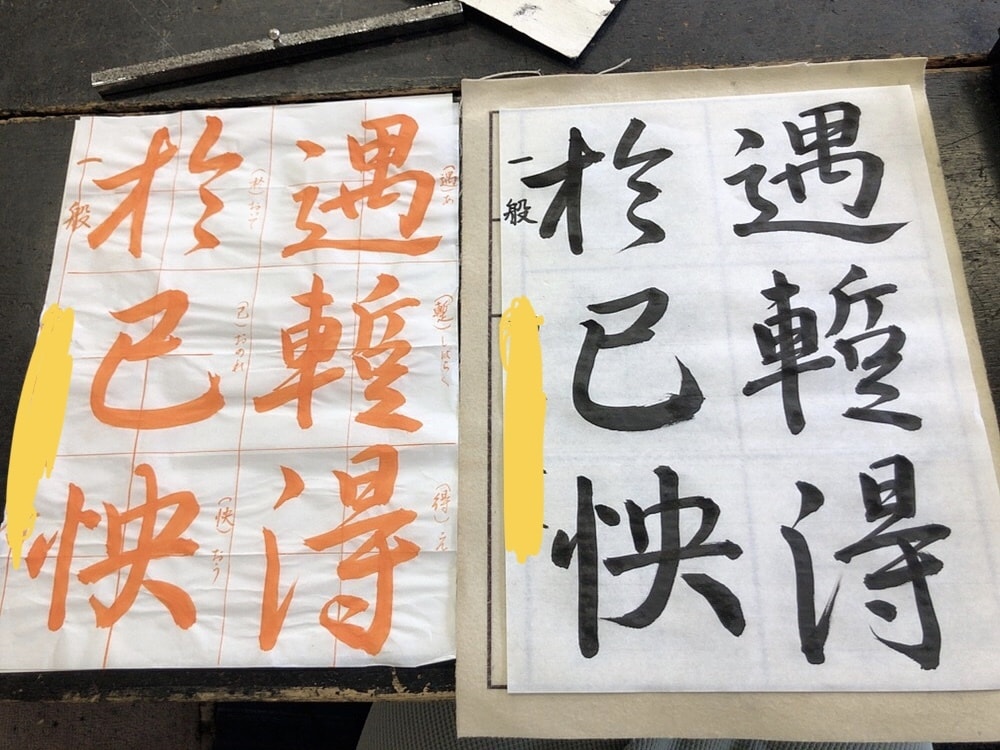 遇蹔得
於己怏
一般
(遇)あ
(蹔)しばらく
(得)え
遇蹔得
(於)おいて
(己)おのれ
(怏)おう
於己怏
一般